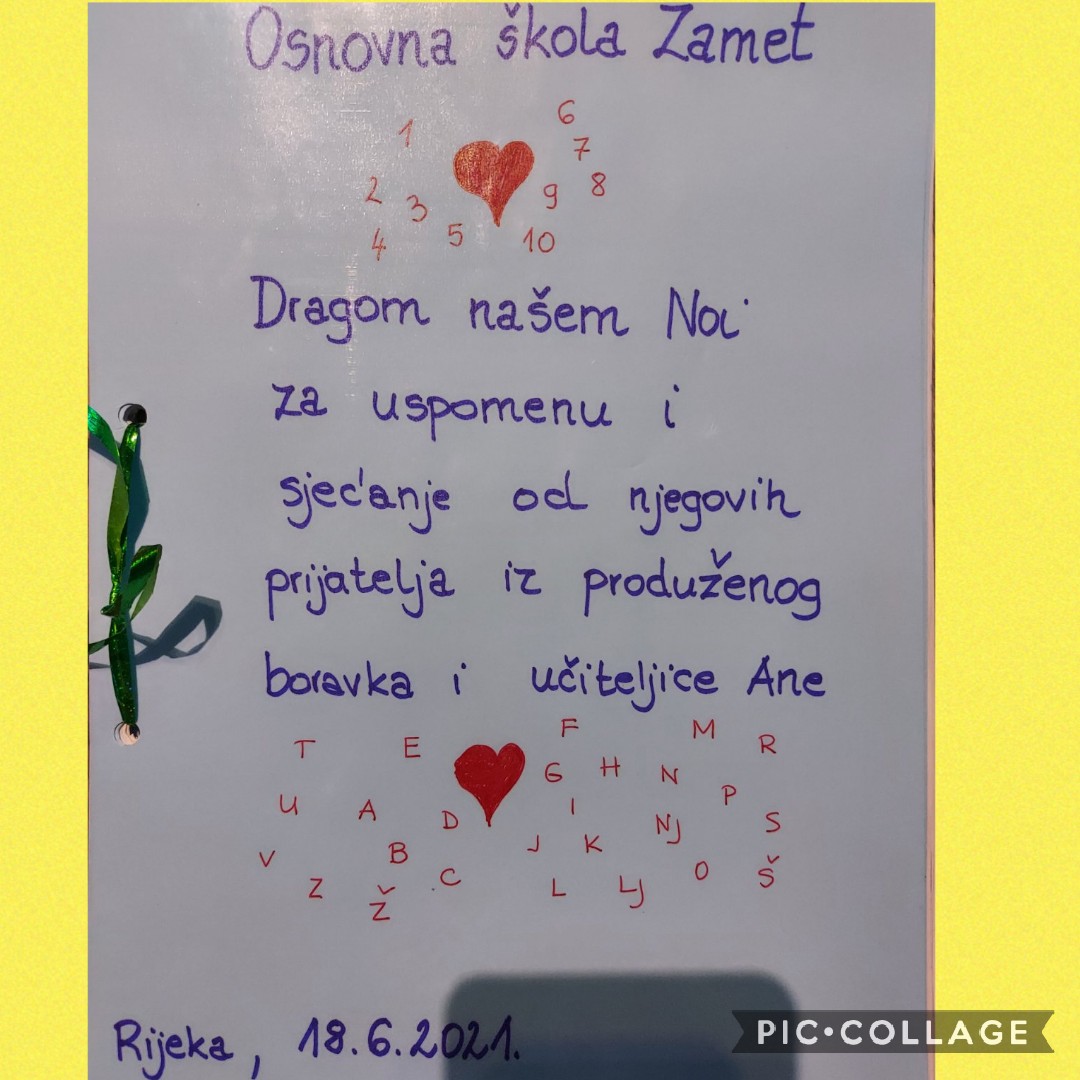 Osnovna škola Zamet
1 6
7
2 3 9 8
4 5 10
Dragom našem Noi
za uspomenu i
sjećanje od njegovih
prijatelja iz produženog
boravka i učiteljice Ane
T E F M R
G H N
U A D I P
B J K NJ S
V Z C L LJ O Š
Ž
Rijeka, 18.6.2021.
PIC•COLLAGE